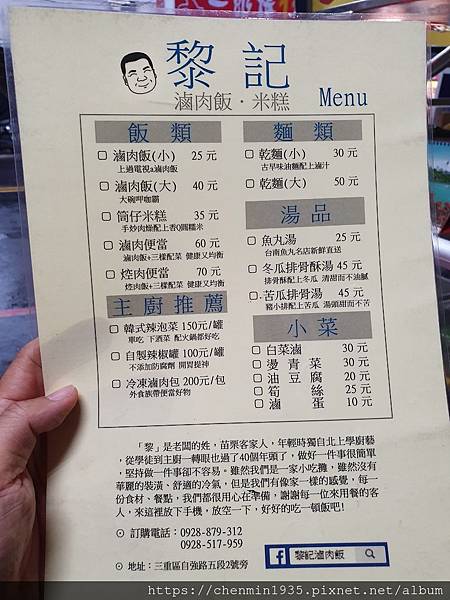 黎記
滷肉飯・米糕 Menu
飯類
滷肉飯(小) 25 元
上過電視a滷肉飯
滷肉飯(大) 40 元
大碗呷咖霸
筒仔米糕 35 元
手炒肉燥配上香Q圓糯米
滷肉便當 60 元
滷肉飯+三樣配菜 健康又均衡
焢肉便當 70 元
焢肉飯+三樣配菜 健康又均衡
主廚推薦
韓式辣泡菜 150元/罐
單吃 下酒菜 配火鍋都好吃
自製辣椒罐 100元/罐
不添加防腐劑 開胃提神
冷凍滷肉包 200元/包
外食族帶便當好物
麵類
乾麵(小) 30 元
古早味油麵配上滷汁
乾麵(大) 50 元
湯品
魚丸湯 25 元
台南魚丸名店新鮮直送
冬瓜排骨酥湯 45 元
排骨酥配上冬瓜 清甜而不油膩
苦瓜排骨湯 45 元
豬小排配上苦瓜 湯頭甜而不苦
小菜
白菜滷 30 元
燙青菜 30 元
油豆腐 20 元
筍絲 25 元
滷蛋 10 元
「黎」是老闆的姓，苗栗客家人，年輕時獨自北上學廚藝
，從學徒到主廚一轉眼也過了40個年頭了，做好一件事很簡單
，堅持做一件事卻不容易。雖然我們是一家小吃攤，雖然沒有
華麗的裝潢、舒適的冷氣，但是我們有像家一樣的感覺，每一
份食材、餐點，我們都很用心在準備，謝謝每一位來用餐的客
人，來這裡放下手機，放空一下，好好的吃一頓飯吧!
訂購電話：0928-879-312
0928-517-959
黎記滷肉飯
地址：三重區自強路五段2號旁
https://chenmin1935.pixnet.net/album